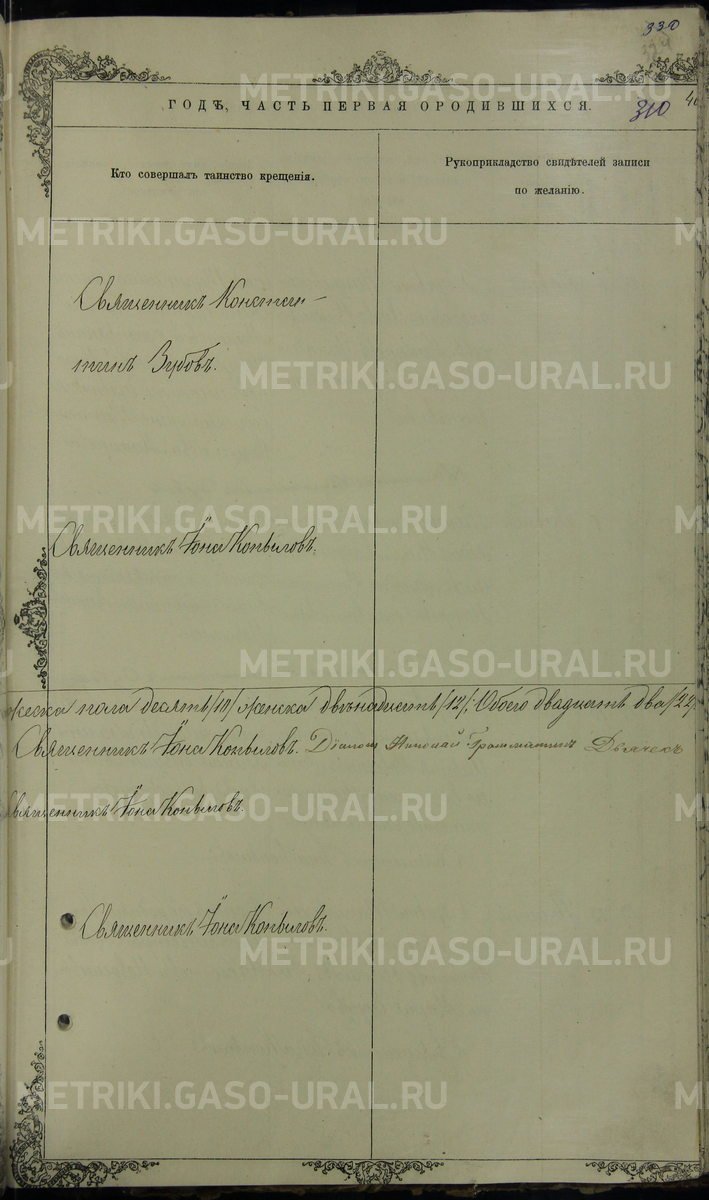 330
310
ГОДѢ, ЧАСТЬ ПЕРВАЯ О РОДИВШИХСЯ.
Кто совершалъ таинство крещенія.
Рукоприкладство свидѣтелей записи
по желанію.
Священникъ Констан-
тинъ Зубовъ.
Священникъ Іона Копыловъ.
жеска пола десять /10/ женска двѣнадцать /12/, Обоего двадцать два /22/
Священникъ Іона Копыловъ. Діаконъ Николай Грамматинъ Дьячекъ
Священникъ Іона Копыловъ.
Священникъ Іона Копыловъ.
METRIKI.GASO-URAL.RU